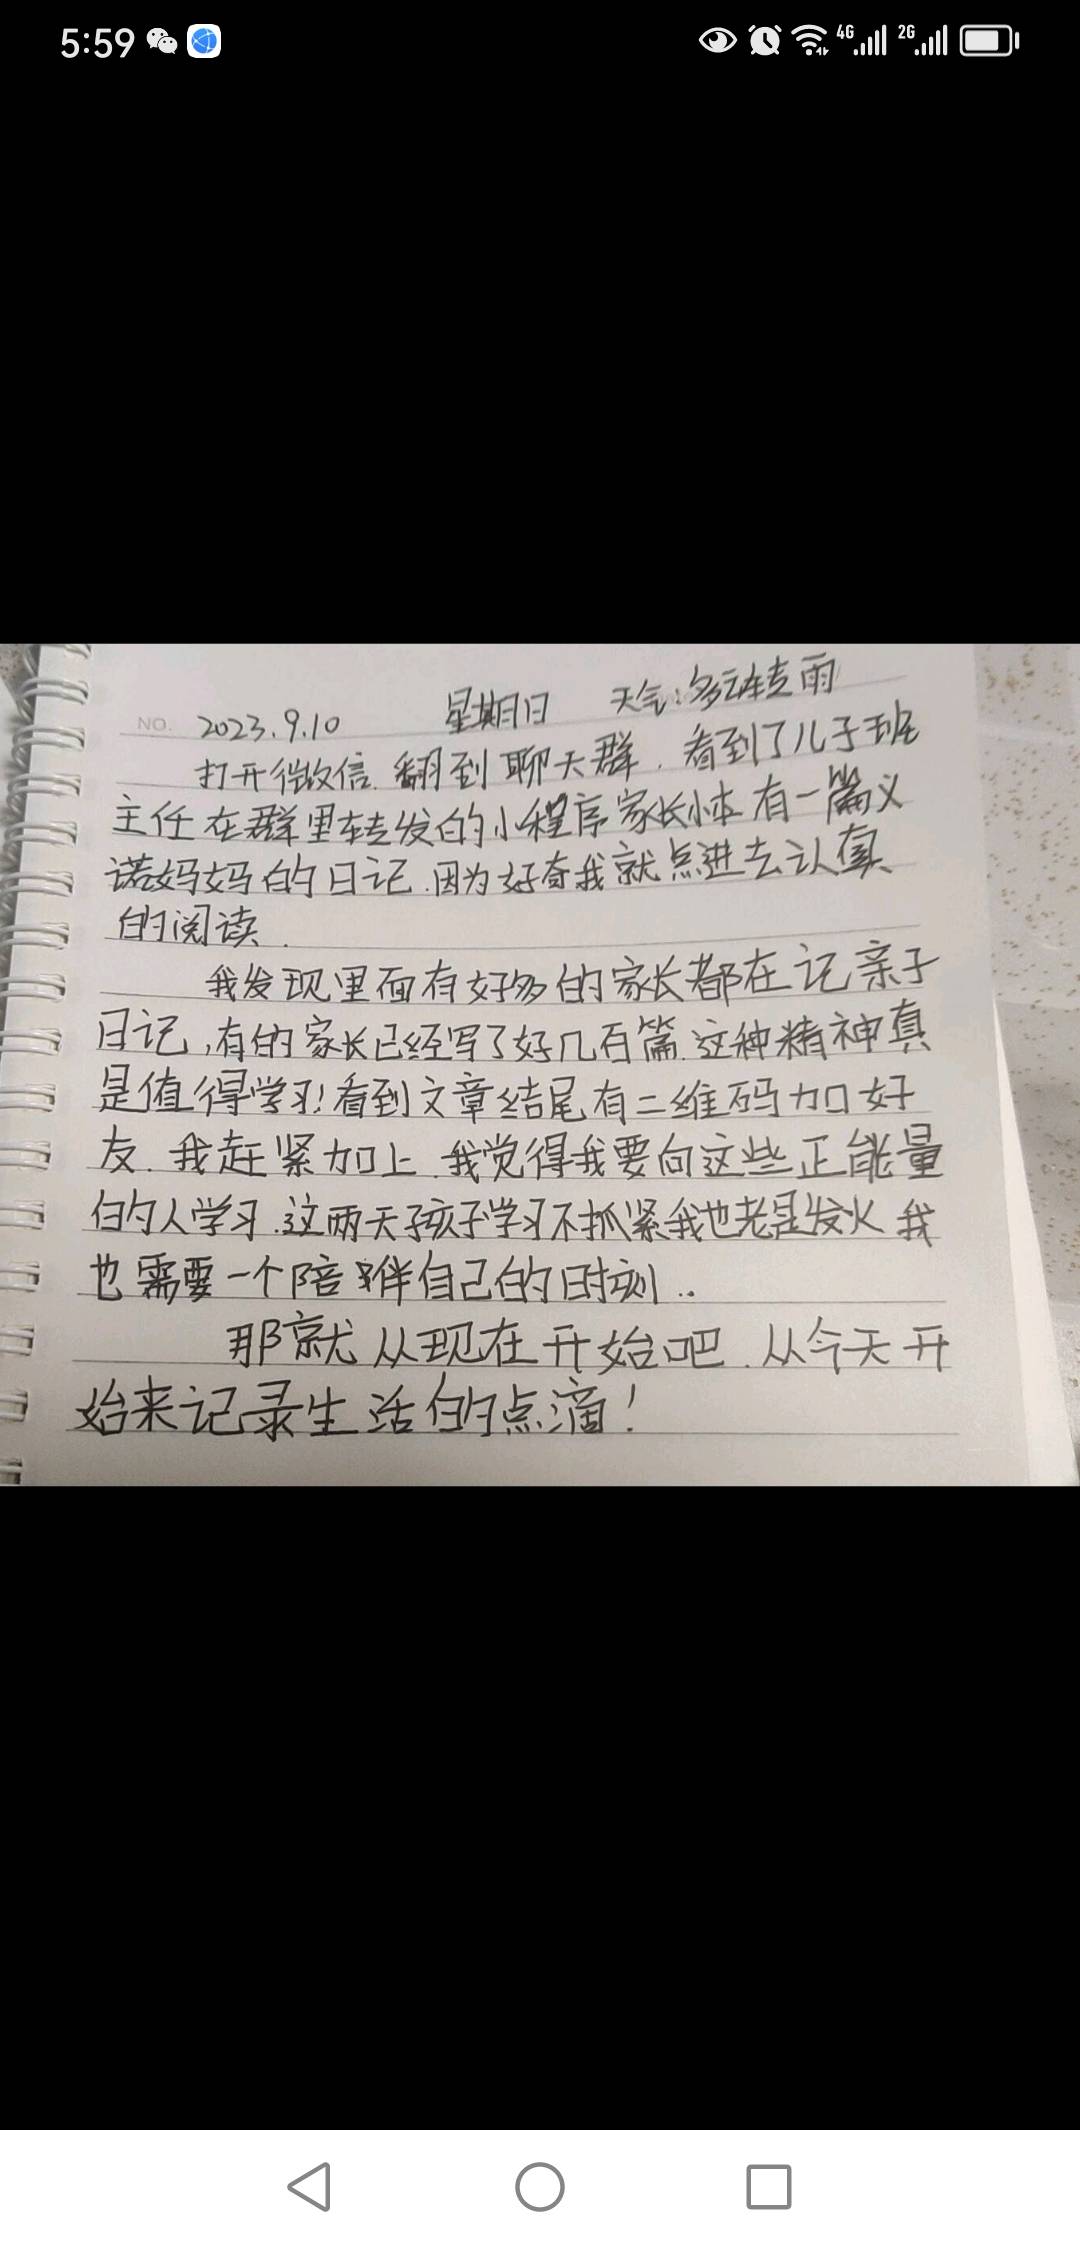 5:59
4G 2G
NO. 2023.9.10 星期日 天气:多云转雨
打开微信.翻到聊天群.看到了儿子班
主任在群里转发的小程序家长小本有一篇义
诺妈妈的日记.因为好奇我就点进去认真
的阅读.
我发现里面有好多的家长都在记亲子
日记,有的家长已经写了好几百篇.这种精神真
是值得学习!看到文章结尾有二维码加好
友.我赶紧加上.我觉得我要向这些正能量
的人学习.这两天孩子学习不抓紧我也老是发火 我
也需要一个陪伴自己的时刻..
那就从现在开始吧.从今天开
始来记录生活的点滴!